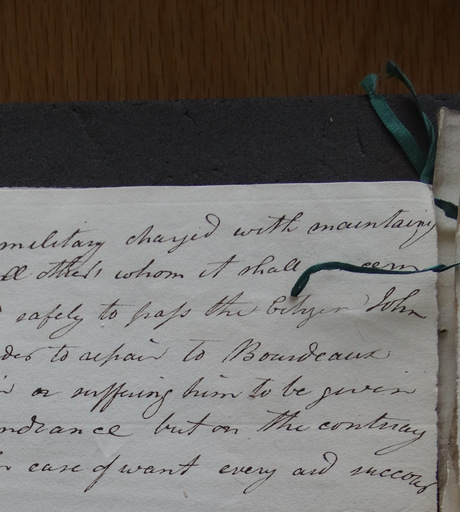 military charged with maintaing
all others whom it shall
safely to pass the Citizen John
to repair to Bourdeaux
or suffering him to be given
but on the contrary
case of want every aid succour